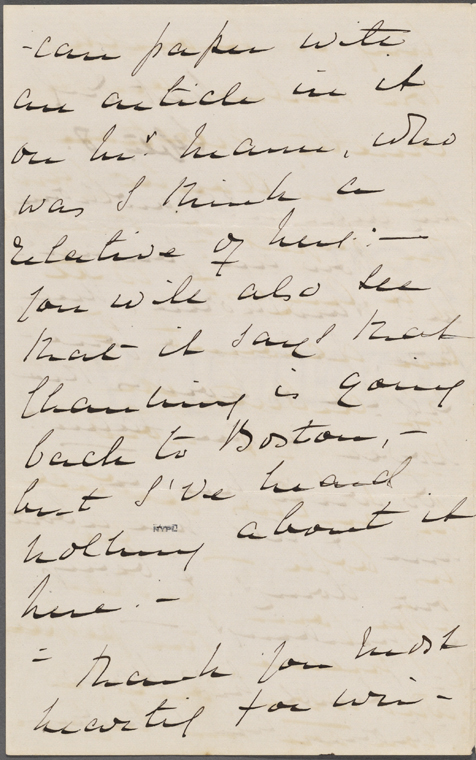 -can paper with
an article in it
on Mr. Mann, who
was I think a
relative of hers:—
You will also see
that it says that
Channing is going
back to Boston,—
but I've heard
nothing about it
here.—
= Thank you most
heartily for win-
NYPL